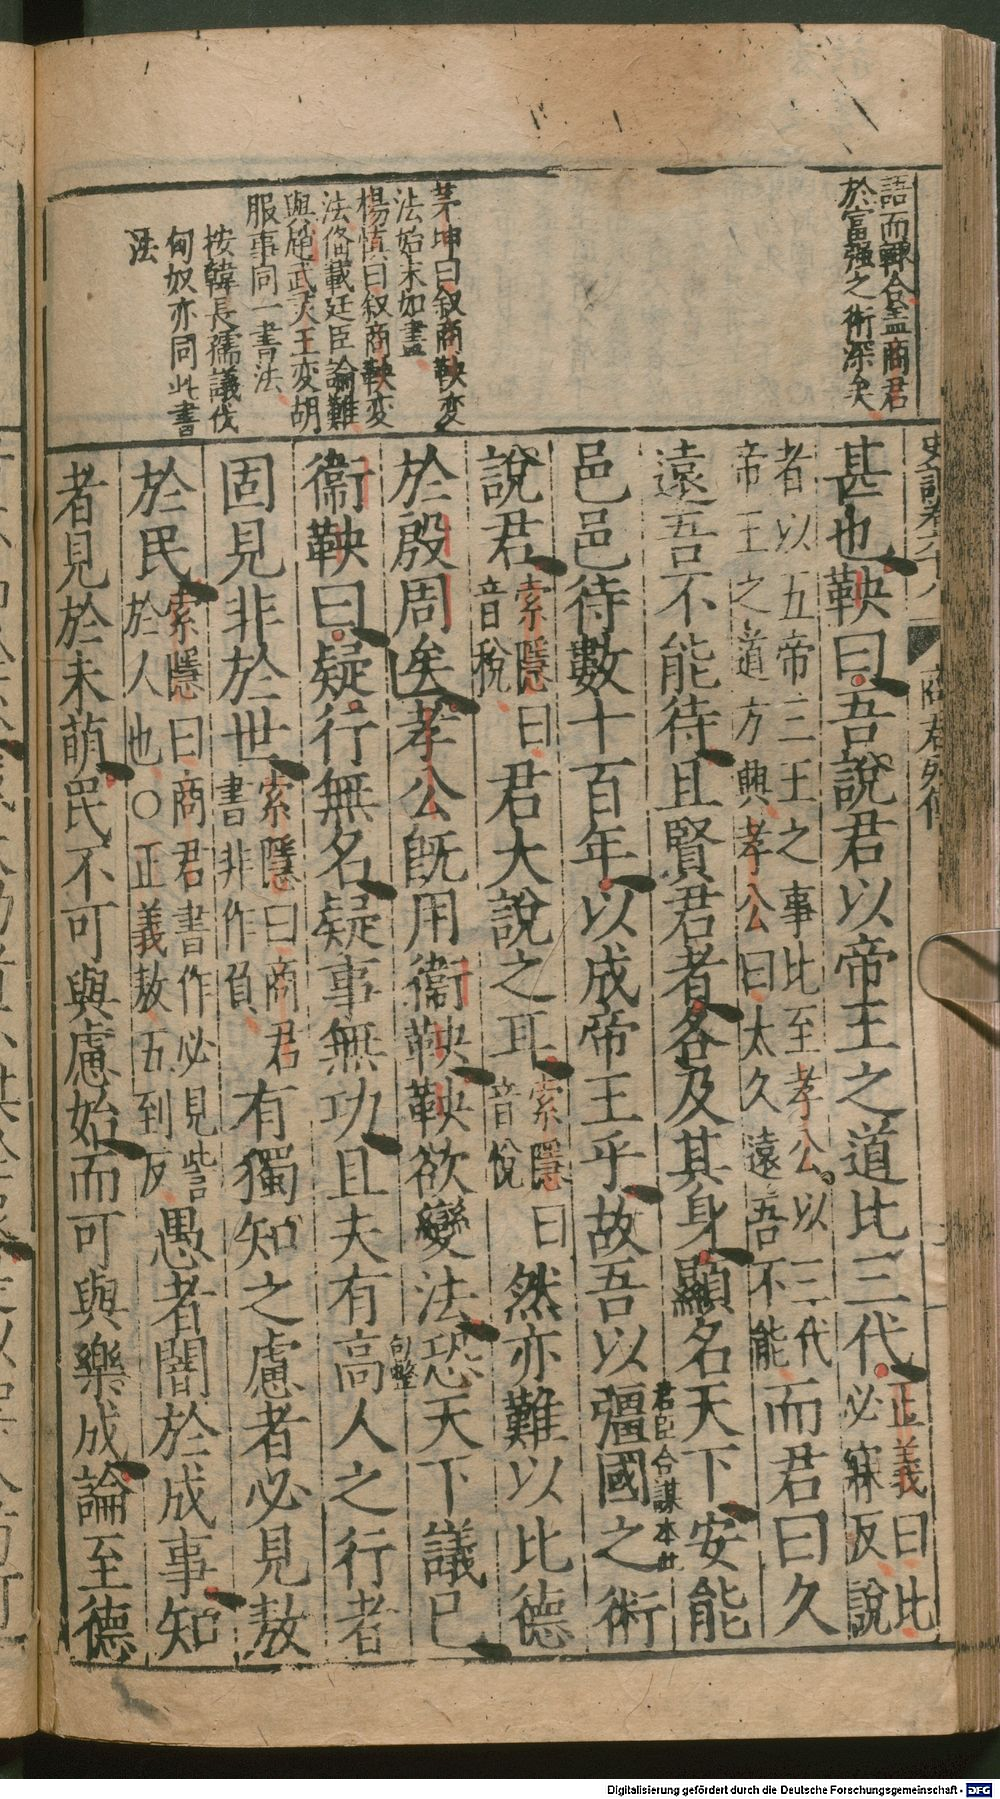 語而轉合蓋商君
於富强之術深矣
茅坤曰叙商鞅变
法始末如畫
楊慎曰叙商鞅変
法俻載廷臣論難
與趙武灵王変胡
服事同一書法
按韓長孺議伐
匈奴亦同此書
法
史記卷六十八
商君列傳
甚也鞅曰吾說君以帝王之道比三代正義曰比
必寐反說
者以五帝三王之事比至孝公以三代
帝王之道方興孝公曰太久遠吾不能而君曰久
遠吾不能待且賢君者各及其身顯名天下安能
君臣合謀本此
邑邑待數十百年以成帝王乎故吾以彊國之術
說君索隱曰
音稅君大說之耳索隱曰
音悅然亦難以比德
於殷周矣孝公旣用衞鞅鞅欲變法恐天下議已
句整
衞鞅曰疑行無名疑事無功且夫有高人之行者
固見非於世索隱曰商君
書非作負有獨知之慮者必見敖
於民索隱曰商君書作必見訾
於人也○正義敖五到反愚者闇於成事知
者見於未萌民不可與慮始而可與樂成論至德
Digitalisierung gefördert durch die Deutsche Forschungsgemeinschaft - DFG